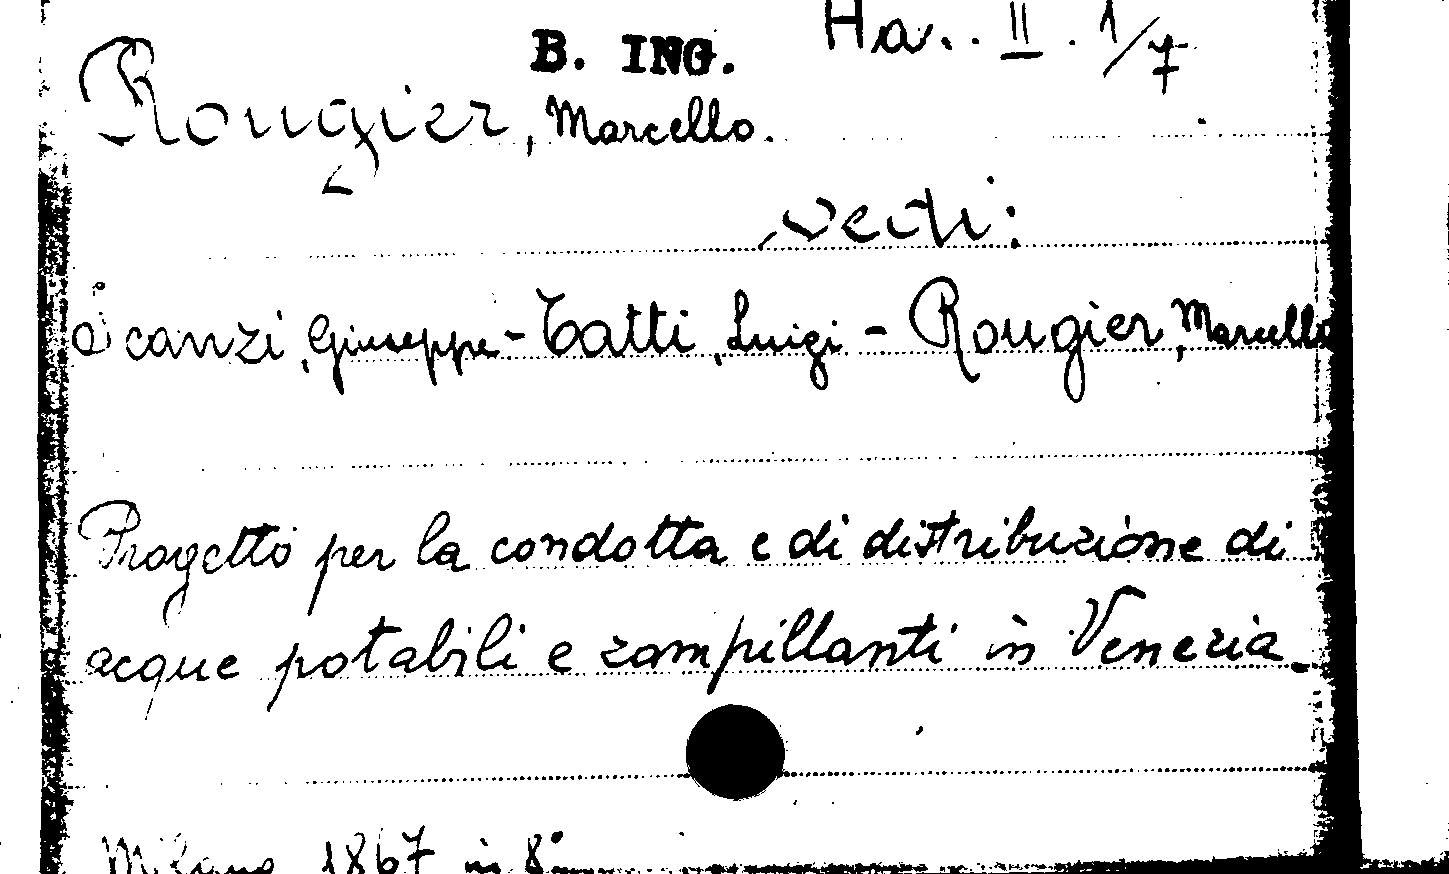 B. ING. Ha. . II . 1/7
Rougier, Marcello.
vedi:
Scanzi, Giuseppe - Tatti, Luigi - Rougier, Marcello
Progetto per la condotta e di distribuzione di
acque potabili e zampillanti in Venezia.
Milano 1867 in 8°